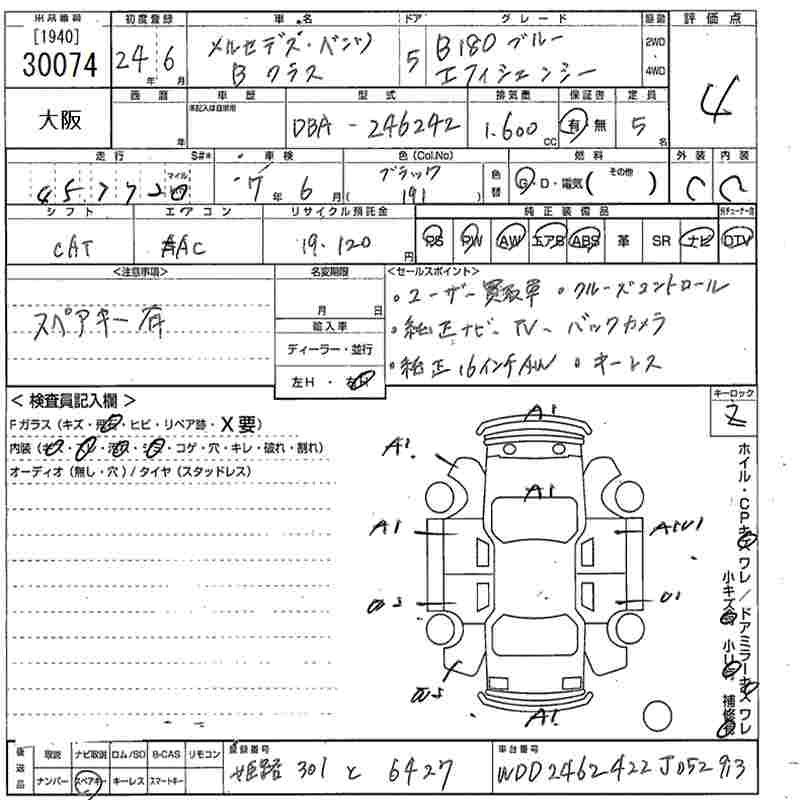 出品番号 初度登録 車 名 ドア グレード 駆動 評価点
[1940]
30074
24年 6月
メルセデス・ベンツ
Bクラス
5
B180 ブルー
エフィシェンシー
2WD
4WD
4
大阪
西暦 車歴 型式 排気量 保証書 定員
年
未記入は自家用
DBA-246242
1.600 CC
有・無
5名
走行 S#* 車検 色(Col,No) 色替 燃料 外装 内装
457720
マイル
7年 6月
ブラック
( 191 )
G・D・電気( その他 )
C C
シフト エアコン リサイクル預託金 純正装備品
CAT
AAC
19.120円
PS PW AW エアB ABS 革 SR ナビ DTV
<注意事項> 名変期限 <セールスポイント>
スペアキー有
月 日
輸入車
ディーラー・並行
左H・右H
。ユーザー買取車 。クルーズコントロール
。純正ナビ、TV、バックカメラ
。純正16インチAW 。キーレス
<検査員記入欄>
Fガラス(キズ・飛石・ヒビ・リペア跡・X要)
内装(キズ・スレ・汚れ・コゲ・穴・キレ・破れ・割れ)
オーディオ(無し・穴)/タイヤ(スタッドレス)
キーロック
Z
A1
A1
A1
A1
A1U1
U2
U1
U2
A1
ホイル・CPキズワレ/ドアミラーキズワレ
小キズ有 小凹有 補修有
後送品
取説 ナビ取説 ロム/SD B-CAS リモコン
ナンバー スペアキー キーレス スマートキー
登録番号
姫路 301 と 6427
車台番号
WDD2462422J052913